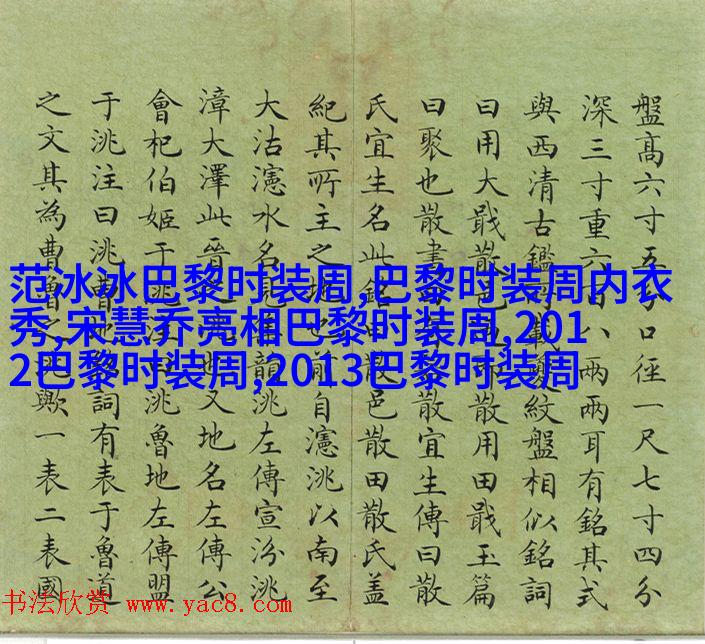 盤高六寸五分口徑一尺七寸四分
深三寸重六百八兩兩耳有銘其式
與西清古鑑載夔紋盤相似銘詞
曰用大戩散邑散用田戩玉篇
曰聚也散書散宜生傳曰散
氏宜生名此銘曰散邑散田散氏蓋
紀其所主之地也前自瀗洮以南至
大沽瀗水名韻洮左傳宣汾洮
漳大澤此晉地也又地名左傳公
會杞伯姬于洮注曰洮魯地左傳盟
于洮注曰洮曹地詞有表于魯道
之文其為曹魯之歟一表二表國
范冰冰巴黎时装周,巴黎时装周内衣
秀,宋慧乔亮相巴黎时装周,201
2巴黎时装周,2013巴黎时装周
书法欣赏 www.yac8.com